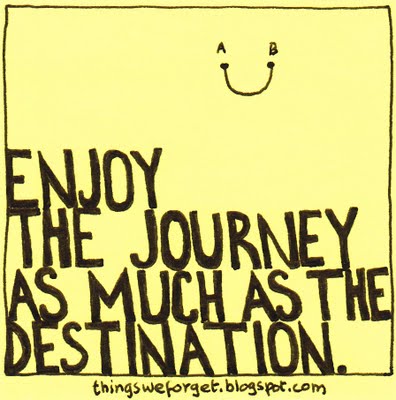 A B
ENJOY
THE JOURNEY
AS MUCH AS THE
DESTINATION.
thingsweforget.blogspot.com